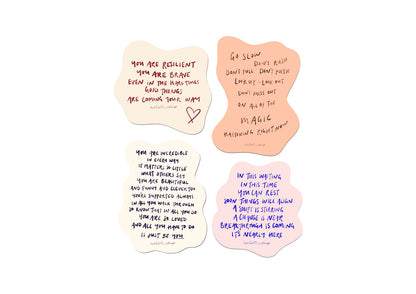 YOU ARE RESILIENT
YOU ARE BRAVE
EVEN IN THE HARD TIMES
GOOD THINGS
ARE COMING YOUR WAY
GO SLOW
DON'T RUSH
DON'T PULL DON'T PUSH
LOOK UP - LOOK OUT
DON'T MISS OUT
ON ALL OF THE
MAGIC
HAPPENING RIGHT NOW
YOU ARE INCREDIBLE
IN EVERY WAY
IT MATTERS SO LITTLE
WHAT OTHERS SAY
YOU ARE BEAUTIFUL
AND FUNNY AND CLEVER TOO
YOU'RE SUPPORTED ALWAYS
IN ALL YOU WALK THROUGH
SO KNOW THAT IN ALL YOU DO
YOU ARE SO LOVED
AND ALL YOU HAVE TO DO
IS JUST BE YOU
IN THIS WAITING
IN THIS TIME
YOU CAN REST
SOON THINGS WILL ALIGN
A SHIFT IS STIRRING
A CHANGE IS NEAR
BREAKTHROUGH IS COMING
IT'S NEARLY HERE